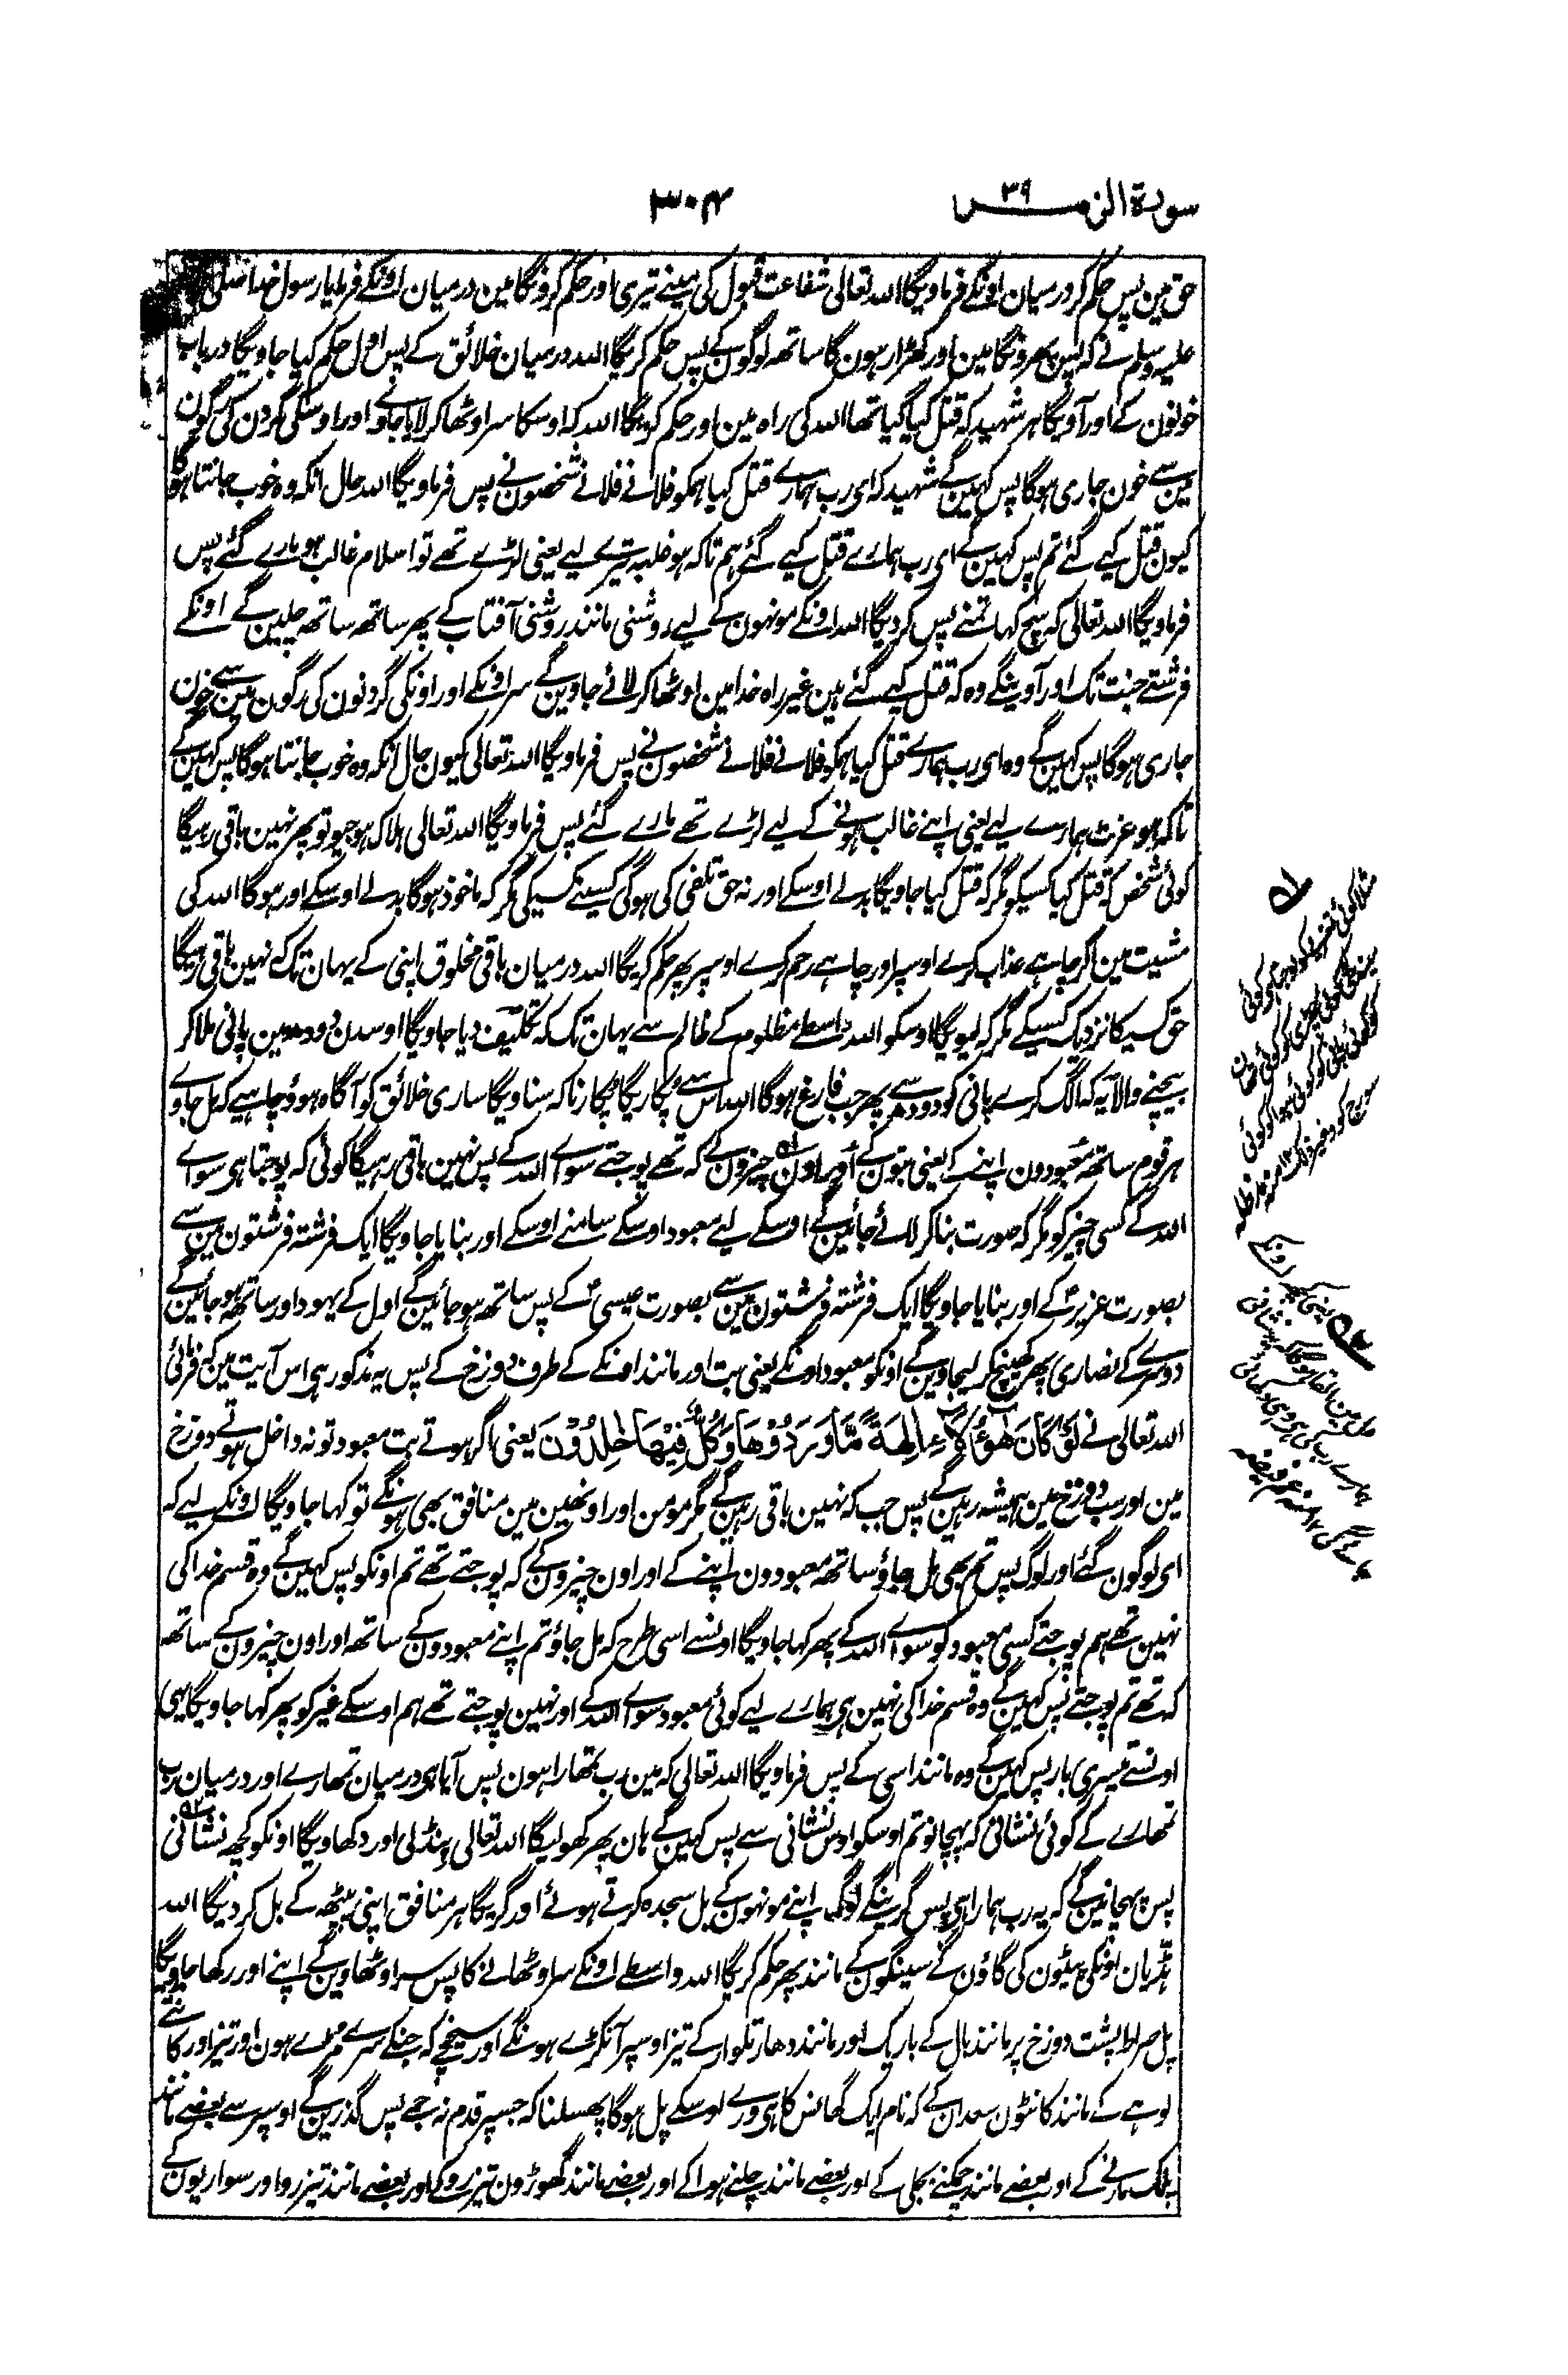 سورة الزمر ٣٩
٣٠٤
حق مین پس حکم کر درمیان اونکے فرماویگا اللہ تعالی شفاعت قبول کی مینے تیری اور حکم کرونگا مین درمیان اونکے فرمایا رسول خدا صلی
علیہ وسلم نے کہ پس پھرونگا مین اور کھڑا رہون گا ساتھ لوگون کے پس حکم کریگا اللہ درمیان خلائق کے پس اول حکم کیا جاویگا درباب
خونون کے اور آویگا ہر شہید کہ قتل کیا گیا تھا اللہ کی راہ مین اور حکم کریگا اللہ کہ اوسکا سر اوٹھا کر لایا جاوے اور اوسکی گردن کی رگون
مین سے خون جاری ہوگا پس کہین گے شہید کہ ای رب ہمارے قتل کیا ہمکو فلانے فلانے شخصون نے پس فرماویگا اللہ حال آنکہ وہ خوب جانتا ہوگا
کیون قتل کیے گئے تم پس کہین گے ای رب ہمارے قتل کیے گئے ہم تاکہ ہو غلبہ تیرے لیے یعنی لڑے تھے تو اسلام غالب ہو مارے گئے پس
فرماویگا اللہ تعالی کہ سچ کہا تمنے پس کردیگا اللہ اونکے مونہون کے لیے روشنی مانند روشنی آفتاب کے پھر ساتھ ساتھ چلین گے اونکے
فرشتے جنت تک اور آوینگے وہ کہ قتل کیے گئے ہین غیر راہ خدا مین اوٹھا کر لائے جاوین گے سر اونکے اور اونکی گردنون کی رگون مین سے خون
جاری ہوگا پس کہین گے وہ ای رب ہمارے قتل کیا ہمکو فلانے فلانے شخصون نے پس فرماویگا اللہ تعالی کیون حال آنکہ وہ خوب جانتا ہوگا پس کہین گے
تاکہ ہو عزت ہمارے لیے یعنی اپنے غالب ہونے کے لیے لڑے تھے مارے گئے پس فرماویگا اللہ تعالی ہلاک ہوجیو تو پھر نہین باقی رہیگا
کوئی شخص کہ قتل کیا کسیکو مگر کہ قتل کیا جاویگا بدلے اوسکے اور نہ حق تلفی کی ہوگی کسینے کسیکی مگر کہ ماخوذ ہوگا بدلے اوسکے اور ہوگا اللہ کی
مشیت مین اگر چاہے عذاب کرے اوسپر اور چاہے رحم کرے اوسپر پھر حکم کریگا اللہ درمیان باقی مخلوق اپنی کے یہان تک کہ نہین باقی رہیگا
حق کسیکا نزدیک کسیکے مگر کہ لیویگا اوسکو اللہ واسطے مظلوم کے ظالم سے یہان تک کہ تکلیف دیا جاویگا اوسدن دودھ مین پانی ملا کر
بیچنے والا یہ کہ الگ کرے پانی کو دودھ سے پھر جب فارغ ہوگا اللہ اس سے پکاریگا پکارنا کہ سناویگا ساری خلائق کو آگاہ ہوو چاہیے کہ مل جاوے
ہر قوم ساتھ معبودون اپنے کے یعنی بتون کے اور اون چیزون کے کہ تھے پوجتے سوائے اللہ کے پس نہین باقی رہیگا کوئی کہ پوجتا ہی سوائے
اللہ کے کسی چیز کو مگر کہ صورت بنا کر لائے جائین گے اوسکے لیے معبود اوسکے سامنے اوسکے اور بنایا جاویگا ایک فرشتہ فرشتون مین سے
بصورت عزیر کے اور بنایا جاویگا ایک فرشتہ فرشتون مین سے بصورت عیسی کے پس ساتھ ہو جائین گے اول کے یہود اور ساتھ ہو جائین گے
دوسرے کے نصاری پھر کھینچ کر لیجاوین گے اونکو معبود اونکے یعنی بت اور مانند اونکے کے طرف دوزخ کے پس یہ مذکور ہی اس آیت مین کہ فرمائی
اللہ تعالی نے لَوْ كَانَ هٰٓؤُلَآءِ اٰلِهَةً مَّا وَرَدُوْهَا وَكُلٌّ فِيْهَا خٰلِدُوْنَ یعنی اگر ہوتے بت معبود تو نہ داخل ہوتے دوزخ
مین اور سب دوزخ مین ہمیشہ رہین گے پس جب کہ نہین باقی رہین گے مگر مومن اور اونھین مین منافق بھی ہونگے تو کہا جاویگا اونکے لیے کہ
ای لوگون گئے اور لوگ پس تم بھی مل جاؤ ساتھ معبودون اپنے کے اور اون چیزون کے کہ پوجتے تھے تم اونکو پس کہین گے وہ قسم خدا کی
نہین تھے ہم پوجتے کسی معبود کو سوائے اللہ کے پھر کہا جاویگا اونسے اسی طرح کہ مل جاؤ تم اپنے معبودون کے ساتھ اور اون چیزون کے ساتھ
کہ تھے تم پوجتے پس کہین گے وہ قسم خدا کی نہین ہی ہمارے لیے کوئی معبود سوائے اللہ کے اور نہین پوجتے تھے ہم اوسکے غیر کو پھر کہا جاویگا یہی
اونسے تیسری بار پس کہین گے وہ مانند اسی کے پس فرماویگا اللہ تعالی کہ مین رب تمھارا ہون پس آیا ہی درمیان تمھارے اور درمیان رب
تمھارے کے کوئی نشانی کہ پہچانو تم اوسکو اوس نشانی سے پس کہین گے ہان پھر کھولیگا اللہ تعالی پنڈلی اور دکھاویگا اونکو کچھ نشانی
پس پہچانین گے کہ یہ رب ہمارا ہی پس گرینگے لوگ اپنے مونہون کے بل سجدہ کرتے ہوئے اور گریگا ہر منافق اپنی پیٹھ کے بل کردیگا اللہ
ہڈیان اونکی پیٹون کی گاؤن کے سینگون کے مانند پھر حکم کریگا اللہ واسطے اونکے سر اوٹھانے کا پس سر اوٹھاوین گے اپنے اور رکھا جاویگا
پل صراط پشت دوزخ پر مانند بال کے باریک اور مانند دھار تلوار کے تیز اوسپر آنکڑے ہونگے اور سیخچے کہ جنکے سرے مڑے ہون اور تیز اور کانٹے
لوہے کے مانند کانٹون سعدان کے کہ نام ایک گھانس کا ہی ورے اوسکے پل ہوگا پھسلنا کہ جسپر قدم نہ جمے پس گذرین گے اوسپر سے بعضے مانند
پلک مارنے کے اور بعضے مانند چمکنے بجلی کے اور بعضے مانند چلنے ہوا کے اور بعضے مانند گھوڑون تیز رو کے اور بعضے مانند تیز رو اور سواریون کے